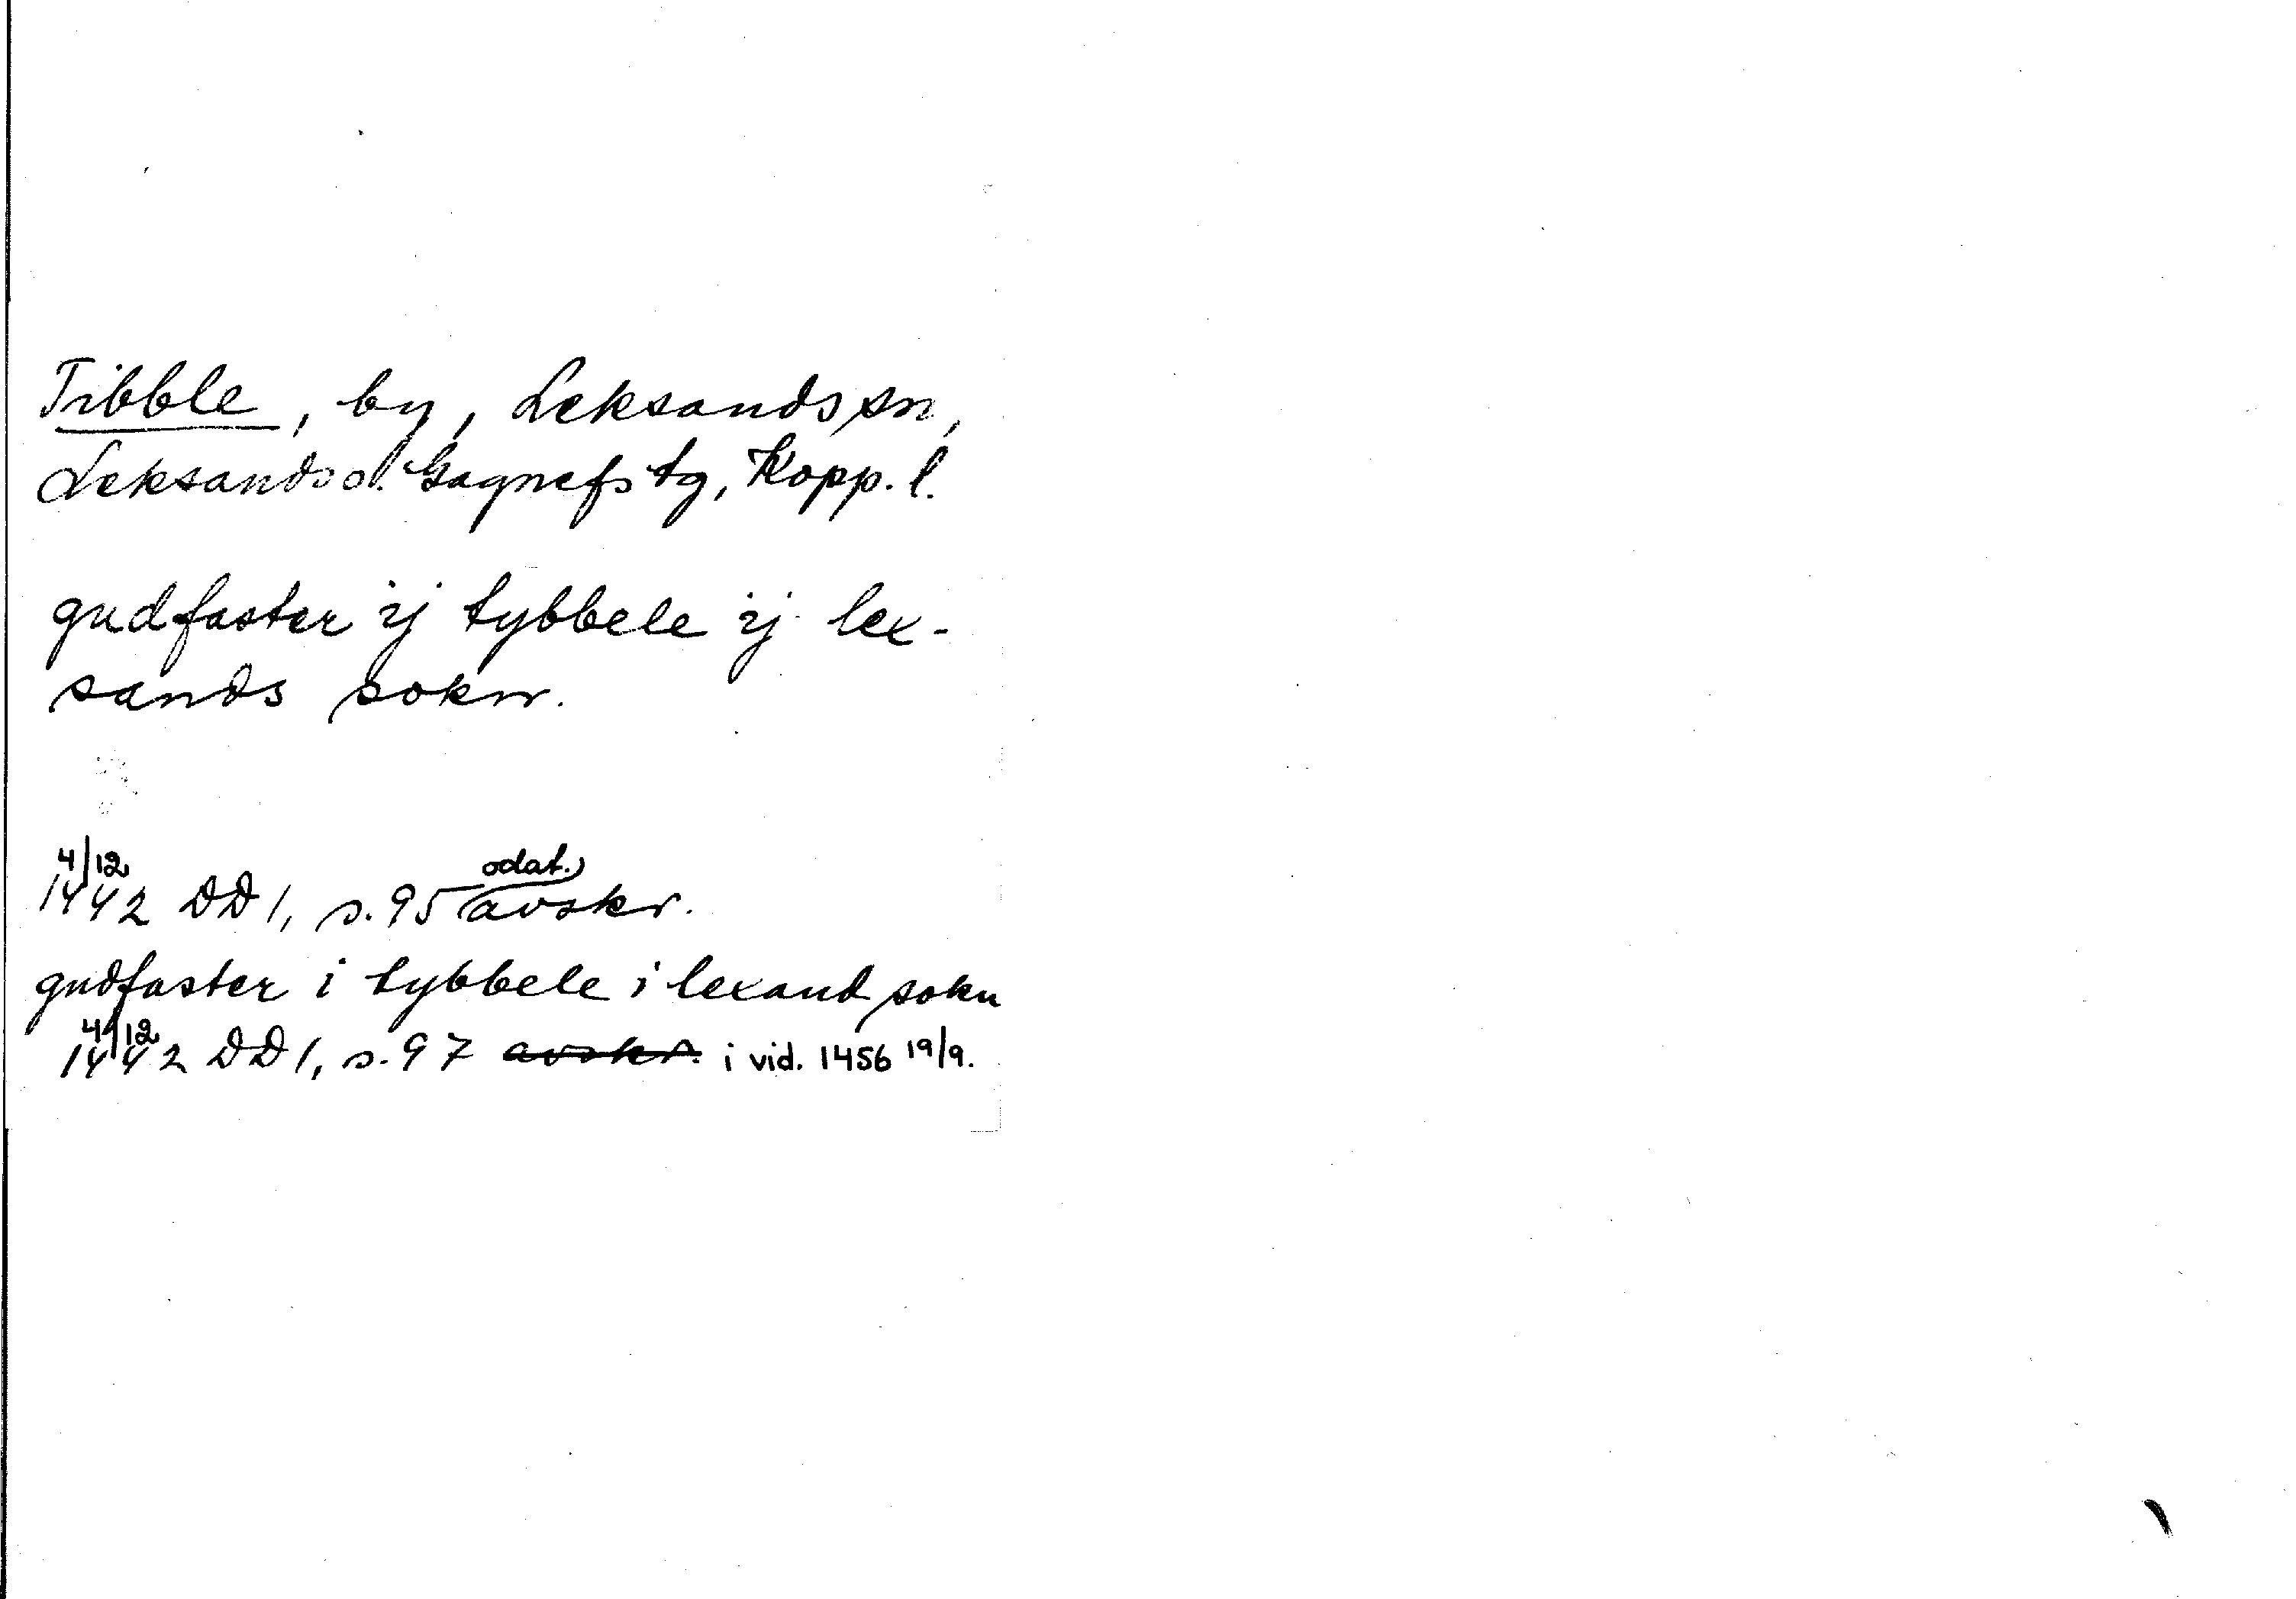 Tibble, by, Leksands sn,
Leksands o. Gagnefs tg, Kopp. l.
gudfaster ij tybbele ij lex-
sands sokn.
4/12
odat.
1442 DD 1, s. 95 avskr.
gudfaster i tybbele i lexand sokn
4/12
1442 DD 1, s. 97 avskr. i vid. 1456 19/9.